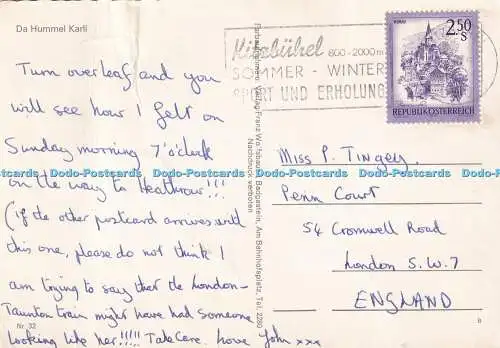 Da Hummel Karli
Turn overleaf and you
will see how I felt on
Sunday morning 7 o'clock
on the way to Heathrow!!!
(if the other postcard arrives with
this one, please do not think I
am trying to say that the London-
Taunton train might have had someone
looking like her!!!!! Take care. love John xxx
Nr. 32
Verlag Franz Wolfsbauer, Badgastein, Am Bahnhofsplatz, Tel. 2260
Nachdruck verboten
Kitzbühel 800-2000m
SOMMER - WINTER
SPORT UND ERHOLUNG
2.50
S
REPUBLIK ÖSTERREICH
Miss P. Tingey,
Penn Court
54 Cromwell Road
London S.W.7
ENGLAND
Dodo-Postcards Dodo-Postcards Dodo-Postcards Dodo-Postcards
Dodo-Postcards Dodo-Postcards Dodo-Postcards Dodo-Postcards